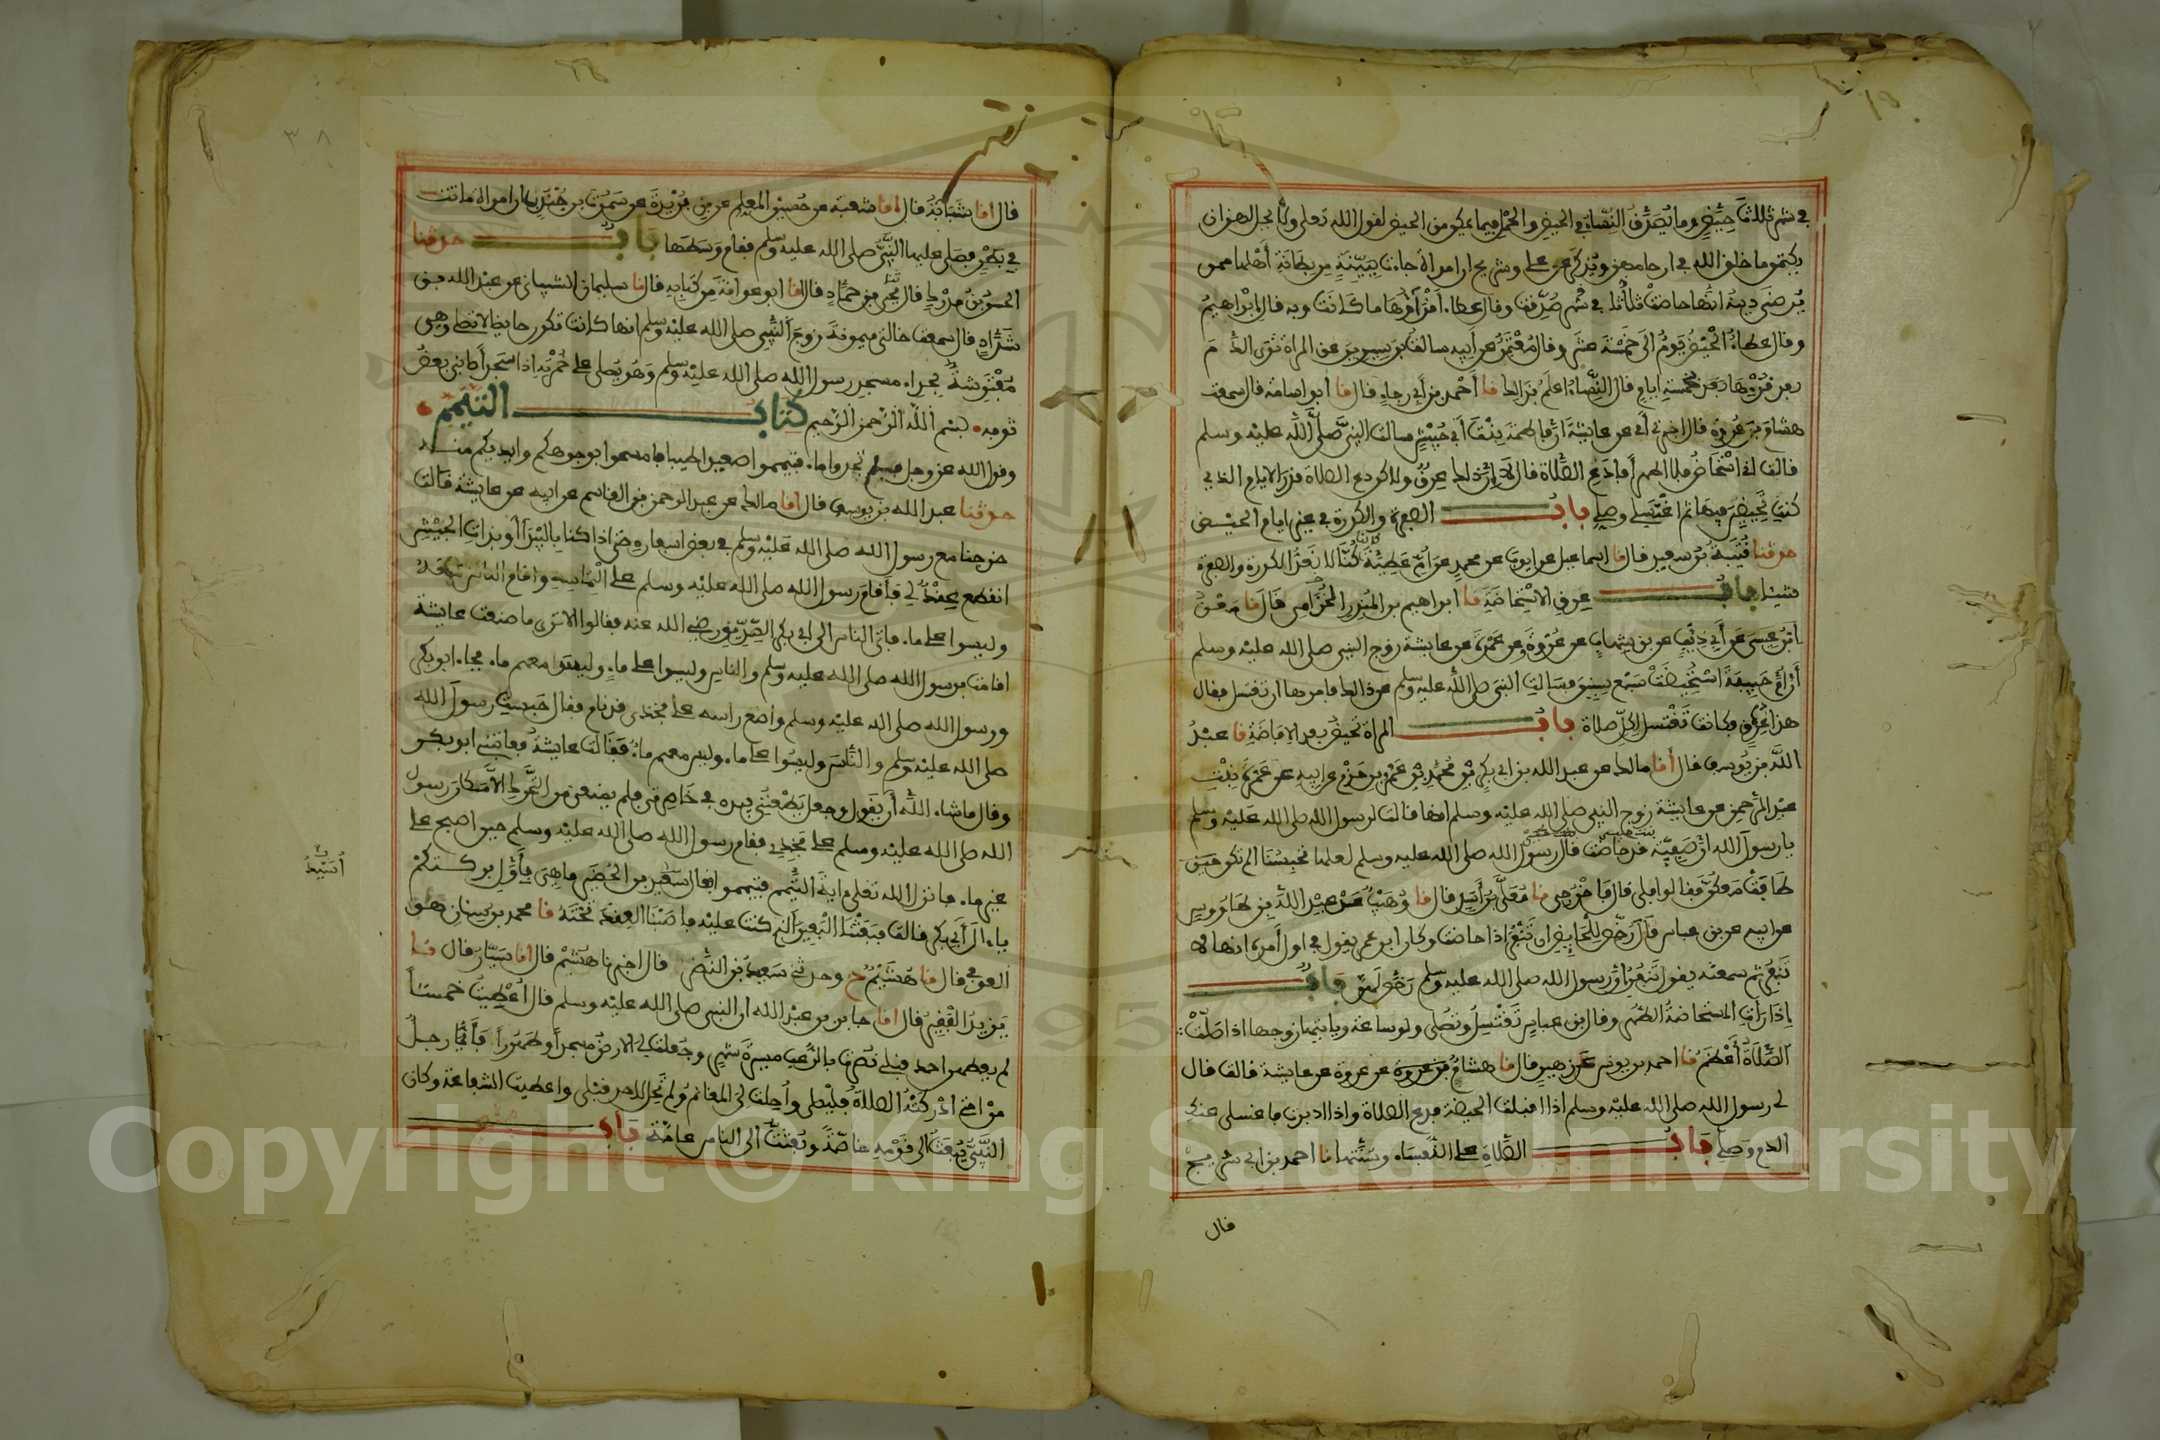 في شهر ثلاث حيض وما يصدق النساء في الحيض والحمل فيما يمكن من الحيض لقول الله تعلى ولا يحل لهن ان
يكتمن ما خلق الله في ارحامهن ويذكر عن علي وشريح ان امراة جاءت ببينة من بطانة أهلها ممن
يرضى دينه انها حاضت ثلاثا في شهر صدقت وقال عطاء أقراؤها ما كانت وبه قال ابراهيم
وقال عطاء الحيض يوم الى خمسة عشر وقال معتمر عن أبيه سالت بن سيرين عن المراة ترى الدم
بعد قرئها بخمسة ايام قال النساء اعلم بذالك نا أحمد بن أبي رجاء قال نا أبو اسامة قال سمعت
هشام بن عروة قال اخبرني أبي عن عايشة ان فاطمة بنت أبي حبيش سالت النبي صلى الله عليه وسلم
قالت اني استحاض فلا اطهر أفادع الصلاة قال لا ان ذلك عرق ولاكن دع الصلاة قدر الايام الذي
كنت تحيضين فيها ثم اغتسلي وصلي باب الصفرة والكدرة في غير ايام الحيض
حدثنا قتيبة بن سعيد قال نا اسماعيل عن ايوب عن محمد عن ام عطية كنا لا نعد الكدرة والصفرة
شيئا باب عرق الاستحاضة نا ابراهيم بن المنذر الحزامي قال نا معن
ابن عيسى عن أبي ذئب عن بن شهاب عن عروة وعن عمرة عن عايشة زوج النبي صلى الله عليه وسلم
أن أم حبيبة استحيضت سبع سنين فسالت النبي صلى الله عليه وسلم عن ذالك فامرها ان تغتسل فقال
هذا عرق فكانت تغتسل لكل صلاة باب المراة تحيض بعد الافاضة نا عبد
الله بن يوسف قال أنا مالك عن عبد الله بن ابي بكر بن محمد بن عمرو بن حزم عن ابيه عن عمرة بنت
عبد الرحمن عن عايشة زوج النبي صلى الله عليه وسلم انها قالت لرسول الله صلى الله عليه وسلم
يا رسول الله ان صفية قد حاضت قال رسول الله صلى الله عليه وسلم لعلها تحبسنا الم تكن
طافت معكن فقالوا بلى قال فاخرجي نا معلى بن أسد قال نا وهيب عن عبد الله بن طاووس
عن ابيه عن بن عباس قال رخص للحايض ان تنفر اذا حاضت وكان ابن عمر يقول في اول أمره انها لا
تنفر ثم سمعته يقول تنفر ان رسول الله صلى الله عليه وسلم رخص لهن باب
اذا رأت المستحاضة الطهر وقال بن عباس تغتسل وتصلي ولو ساعة وياتيها زوجها اذا صلت
الصلاة أعظم نا احمد بن يونس عن زهير قال نا هشام بن عروة عن عروة عن عايشة قالت قال
لي رسول الله صلى الله عليه وسلم اذا اقبلت الحيضة فدع الصلاة واذا ادبرت فاغسلي عنك
الدم وصلي باب الصلاة على النفساء وسنتها نا احمد بن ابي شريح
قال
قال انا شبابة قال انا شعبة عن حسين المعلم عن بن بريدة عن سمرة بن جندب ان امراة ماتت
في بطن فصلى عليها النبي صلى الله عليه وسلم فقام وسطها باب حدثنا
الحسن بن مدرك قال نا يحيى بن حماد قال أنا ابو عوانة من كتابه قال نا سليمان الشيباني عن عبد الله بن
شداد قال سمعت خالتي ميمونة زوج النبي صلى الله عليه وسلم انها كانت تكون حايضا لا تصلي وهي
مفترشة بحذاء مسجد رسول الله صلى الله عليه وسلم وهو يصلي على خمرته اذا سجد أصابني بعض
ثوبه بسم الله الرحمن الرحيم كتاب التيمم
وقول الله عز وجل فلم تجدوا ماء فتيمموا صعيدا طيبا فامسحوا بوجوهكم وايديكم منه
حدثنا عبد الله بن يوسف قال انا مالك عن عبد الرحمن بن القاسم عن ابيه عن عايشة قالت
خرجنا مع رسول الله صلى الله عليه وسلم في بعض اسفاره حتى اذا كنا بالبيداء أو بذات الجيش
انقطع عقد لي فأقام رسول الله صلى الله عليه وسلم على التماسه واقام الناس معه
وليسوا على ماء فأتى الناس الى ابي بكر الصديق رضي الله عنه فقالوا الا ترى ما صنعت عايشة
اقامت برسول الله صلى الله عليه وسلم والناس وليسوا على ماء وليس معهم ماء فجاء ابو بكر
ورسول الله صلى الله عليه وسلم واضع راسه على فخذي قد نام فقال حبست رسول الله
صلى الله عليه وسلم والناس وليسوا على ماء وليس معهم ماء فقالت عايشة فعاتبني ابو بكر
وقال ما شاء الله أن يقول وجعل يطعنني بيده في خاصرتي فلم يمنعني من التحرك الا مكان رسول
الله صلى الله عليه وسلم على فخذي فقام رسول الله صلى الله عليه وسلم حين اصبح على
غير ماء فانزل الله تعلى ءاية التيمم فتيمموا فقال اسيد بن الحضير ما هي باول بركتكم
يا ءال أبي بكر قالت فبعثنا البعير الذي كنت عليه فاصبنا العقد تحته نا محمد بن سنان هو
العوفي قال نا هشيم ح وحدثني سعيد بن النضر قال اخبرنا هشيم قال انا سيار قال نا
يزيد الفقير قال انا جابر بن عبد الله ان النبي صلى الله عليه وسلم قال أعطيت خمسا
لم يعطهن احد قبلي نصرت بالرعب مسيرة شهر وجعلت لي الارض مسجدا وطهورا فأيما رجل
من امتي ادركته الصلاة فليصلي وأحلت لي المغانم ولم تحل لاحد قبلي واعطيت الشفاعة وكان
النبي يبعث الى قومه خاصة وبعثت الى الناس عامة باب
أسيد
٣٨
Copyright © King Saud University